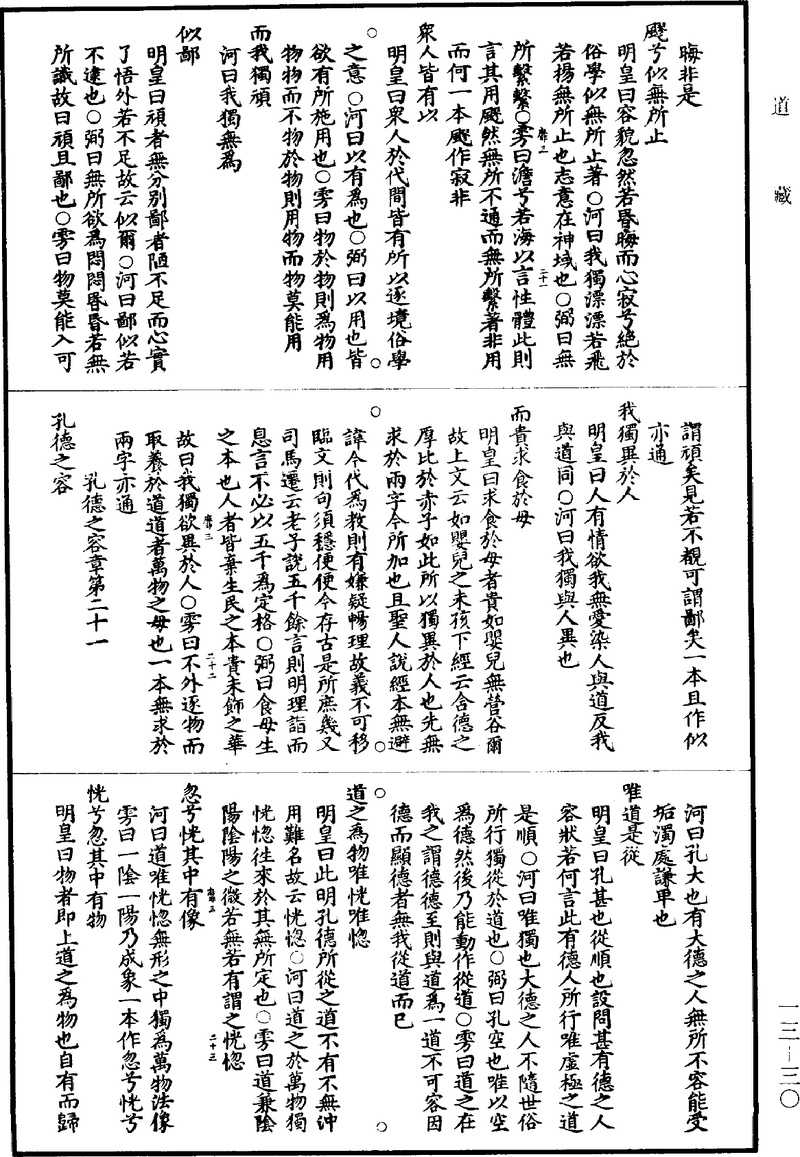 道藏
晦非是
飂兮似無所止
明皇曰容貌忽然若昬晦而心寂兮絕於
俗學似無所止著○河曰我獨漂漂若飛
若揚無所止也志意在神域也○弼曰無
所繫縶○雱曰澹兮若海以言性體此則
言其用飂然無所不通而無所繫著非用
而何一本飂作寂非
衆人皆有以
明皇曰衆人於代間皆有所以逐境俗學
之意○河曰以有為也○弼曰以用也皆
欲有所施用也○雱曰物於物則爲物用
物物而不物於物則用物而物莫能用
而我獨頑
河曰我獨無爲
似鄙
明皇曰頑者無分别鄙者陋不足而心實
了悟外若不足故云似爾○河曰鄙似若
不逮也○弼曰無所欲爲悶悶昬昬若無
所識故曰頑且鄙也○雱曰物莫能入可
謂頑矣見若不覩可謂鄙矣一本且作似
亦通
我獨異於人
明皇曰人有情欲我無愛染人與道反我
與道同○河曰我獨與人異也
而貴求食於母
明皇曰求食於母者貴如嬰兒無營谷爾
故上文云如嬰兒之未孩下經云含德之
厚比於赤子如此所以獨異於人也先無
求於兩字今所加也且聖人說經本無避
諱今代爲教則有嫌疑暢理故義不可移
臨文則句須穩便便今存古是所庶幾又
司馬遷云老子說五千餘言則明理詣而
息言不必以五千爲定格○弼曰食母生
之本也人者皆棄生民之本貴末飾之華
故曰我獨欲異於人○雱曰不外逐物而
取養於道道者萬物之母也一本無求於
兩字亦通
孔德之容章第二十一
孔德之容
河曰孔大也有大德之人無所不容能受
垢濁處謙畢也
唯道是從
明皇曰孔甚也從順也設問甚有德之人
容狀若何言此有德人所行唯虛極之道
是順○河曰唯獨也大德之人不隨世俗
所行獨從於道也○弼曰孔空也唯以空
爲德然後乃能動作從道○雱曰道之在
我之謂德德至則與道爲一道不可容因
德而顯德者無我從道而已
道之爲物唯恍唯惚
明皇曰此明孔德所從之道不有不無沖
用難名故云恍惚○河曰道之於萬物獨
恍惚往來於其無所定也○雱曰道兼陰
陽陰陽之微若無若有謂之恍惚
忽兮恍其中有像
河曰道唯恍惚無形之中獨爲萬物法像
雱曰一陰一陽乃成象一本作忽兮恍兮
恍兮忽其中有物
明皇曰物者即上道之爲物也自有而歸
一三—三〇